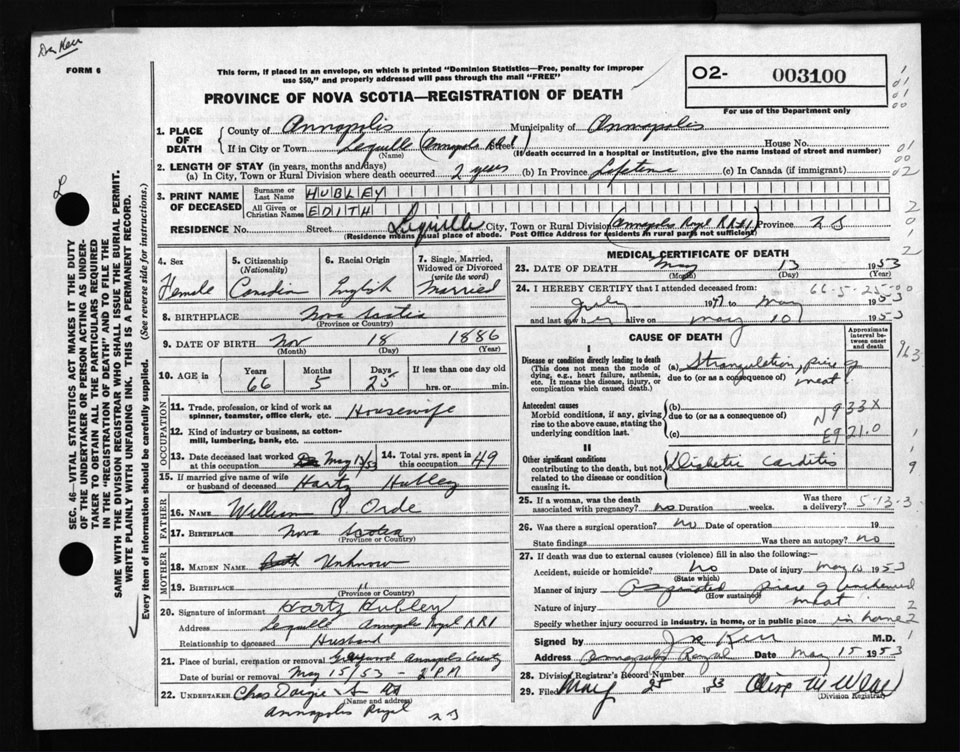 Dr Kerr
FORM 6
This form, if placed in an envelope, on which is printed "Dominion Statistics—Free, penalty for improper
use $50," and properly addressed will pass through the mail "FREE"
PROVINCE OF NOVA SCOTIA—REGISTRATION OF DEATH
O2- 003100
For use of the Department only
1. PLACE OF DEATH
County of Annapolis Municipality of Annapolis
If in City or Town Lequille (Annapolis RR1) Street House No.
(Name) (If death occurred in a hospital or institution, give the name instead of street and number)
2. LENGTH OF STAY (in years, months and days)
(a) In City, Town or Rural Division where death occurred 2 years (b) In Province Lifetime (c) In Canada (if immigrant)
3. PRINT NAME OF DECEASED
Surname or Last Name HUBLEY
All Given or Christian Names EDITH
RESIDENCE No. Street Lequille City, Town or Rural Division (Annapolis Royal RR#1) Province
(Residence means usual place of abode. Post Office Address for residents in rural parts not sufficient)
4. Sex Female
5. Citizenship (Nationality) Canadian
6. Racial Origin English
7. Single, Married, Widowed or Divorced (write the word) Married
8. BIRTHPLACE Nova Scotia
(Province or Country)
9. DATE OF BIRTH Nov 18 1886
(Month) (Day) (Year)
10. AGE in Years 66 Months 5 Days 25 If less than one day old
hrs. or min.
OCCUPATION
11. Trade, profession, or kind of work as
spinner, teamster, office clerk, etc. Housewife
12. Kind of industry or business, as cotton-
mill, lumbering, bank, etc.
13. Date deceased last worked at this occupation May 13/53
14. Total yrs. spent in this occupation 49
15. If married give name of wife
or husband of deceased Hartz Hubley
FATHER
16. NAME William C Orde
17. BIRTHPLACE Nova Scotia
(Province or Country)
MOTHER
18. MAIDEN NAME Unknown
19. BIRTHPLACE "
(Province or Country)
20. Signature of informant Hartz Hubley
Address Lequille Annapolis Royal RR1
Relationship to deceased Husband
21. Place of burial, cremation or removal Annapolis County
Date of burial or removal May 15/53 - 2 PM
22. UNDERTAKER Chas Dargie & Son
(Name and address)
Annapolis Royal
MEDICAL CERTIFICATE OF DEATH
23. DATE OF DEATH May 13 1953
(Month) (Day) (Year)
24. I HEREBY CERTIFY that I attended deceased from: 66-5-25-00
July 1947 to May 1953
and last saw her alive on May 10 1953
CAUSE OF DEATH
Approximate interval between onset and death
I
Disease or condition directly leading to death
(This does not mean the mode of
dying, e.g., heart failure, asthenia,
etc. It means the disease, injury, or
complication which caused death.)
(a) Strangulation, piece of
due to (or as a consequence of) meat
Antecedent causes
Morbid conditions, if any, giving
rise to the above cause, stating the
underlying condition last.
(b)
due to (or as a consequence of) N933X
(c) E921.0
II
Other significant conditions
contributing to the death, but not
related to the disease or condition
causing it.
carditis
25. If a woman, was the death
associated with pregnancy? no Duration weeks. Was there a delivery? 5-13-3
26. Was there a surgical operation? no Date of operation 19
State findings Was there an autopsy? no
27. If death was due to external causes (violence) fill in also the following:—
Accident, suicide or homicide? No Date of injury May 13 1953
(State which)
Manner of injury Aspirated piece of unchewed
(How sustained)
Nature of injury meat
Specify whether injury occurred in industry, in home, or in public place in home
Signed by Kerr M.D.
Address Annapolis Royal Date May 15 1953
28. Division Registrar's Record Number
29. Filed May 25 1953
(Division Registrar)
SEC. 46—VITAL STATISTICS ACT MAKES IT THE DUTY
OF THE UNDERTAKER OR PERSON ACTING AS UNDER-
TAKER TO OBTAIN ALL THE PARTICULARS REQUIRED
IN THE "REGISTRATION OF DEATH" AND TO FILE THE
SAME WITH THE DIVISION REGISTRAR WHO SHALL ISSUE THE BURIAL PERMIT.
WRITE PLAINLY WITH UNFADING INK. THIS IS A PERMANENT RECORD.
Every item of information should be carefully supplied. (See reverse side for instructions.)